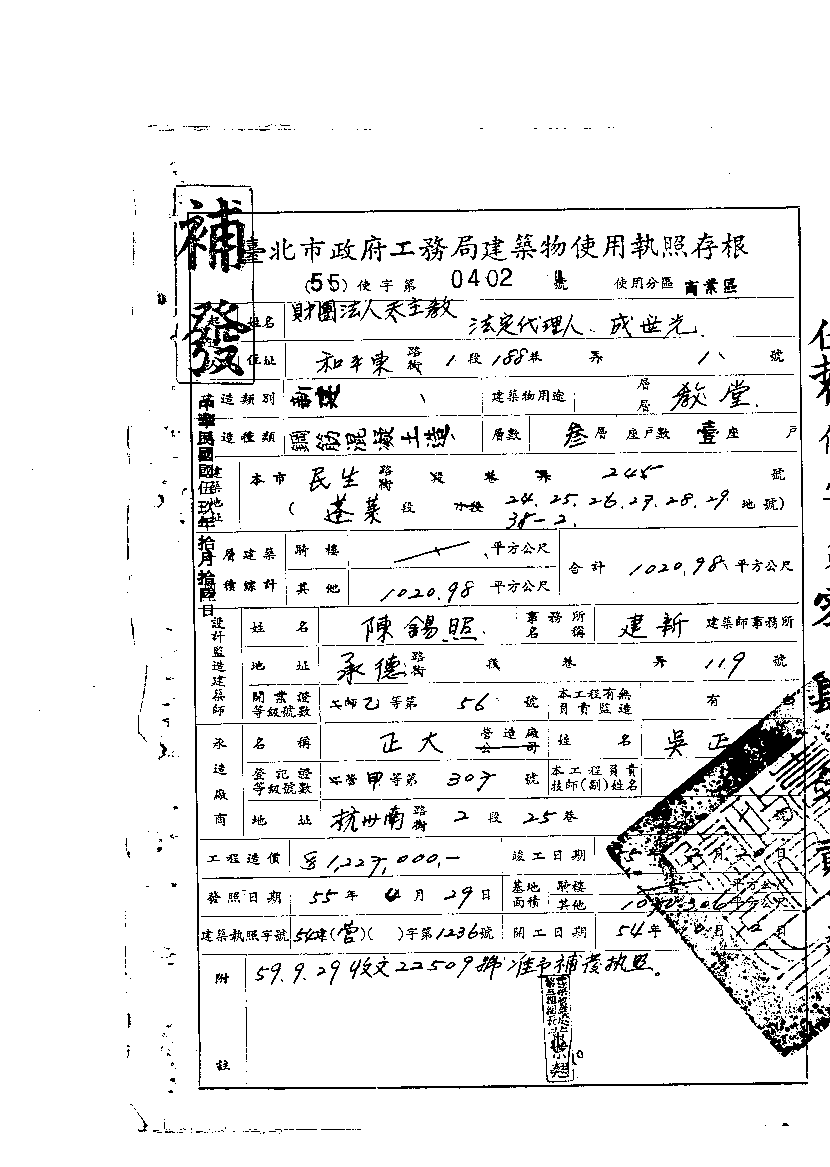 補發
臺北市政府工務局建築物使用執照存根
(55)使字第 0402 號 使用分區 商業區
姓名 財團法人天主教 法定代理人 成世光
住址 和平東 路街 1 段 188 巷 弄 1 號
造類別 新建 建築物用途 層層 教堂
造種類 鋼筋混凝土造 層數 叁層 座戶數 壹座 戶
建築地址 本市 民生 路街 段 巷 弄 245 號
(蓬萊 段 小段 24.25.26.27.28.29 地號)
38-2
層建築 騎樓 平方公尺 合計 1020.98 平方公尺
積總計 其他 1020.98 平方公尺
中華民國伍玖年拾月拾陸日
設計監造建築師 姓名 陳錫照 事務所名稱 建新 建築師事務所
地址 承德 路街 段 巷 弄 119 號
開業證等級號數 乙等第 56 號 本工程有無負責監造 有
承造廠商 名稱 正大 營造廠公司 姓名 吳正
登記證等級號數 營甲等第 號 本工程負責技師(副)姓名
地址 杭州南 路街 2 段 25 巷 號
工程造價 1,227,000,- 竣工日期
發照日期 55年 4月 29日 基地面積 騎樓 平方公尺 其他 平方公尺
建築執照字號 54建(營)( )字第1236號 開工日期 54年 月 12日
附註 59.9.29收文22509號准予補發執照。